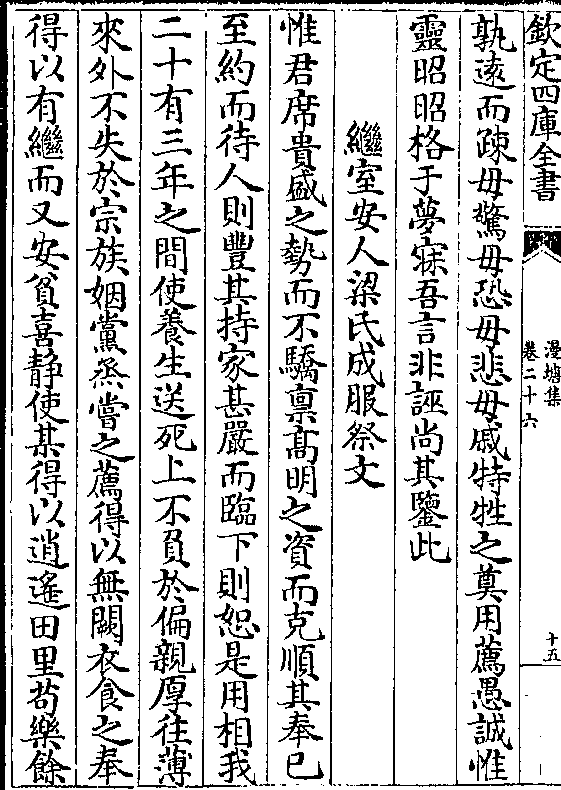 欽定四庫全書
漫塘集
卷二十六
十五
孰逺而疎毋驚毋恐毋悲毋戚特牲之奠用薦愚誠惟
靈昭昭格于夢寐吾言非誣尚其鑒此
繼室安人梁氏成服祭文
惟君席貴盛之勢而不驕禀髙明之資而克順其奉已
至約而待人則豐其持家甚嚴而臨下則恕是用相我
二十有三年之間使養生送死上不負於偏親厚往薄
來外不失於宗族姻黨烝嘗之薦得以無闕衣食之奉
得以有繼而又安貧喜静使某得以逍遥田里苟樂餘